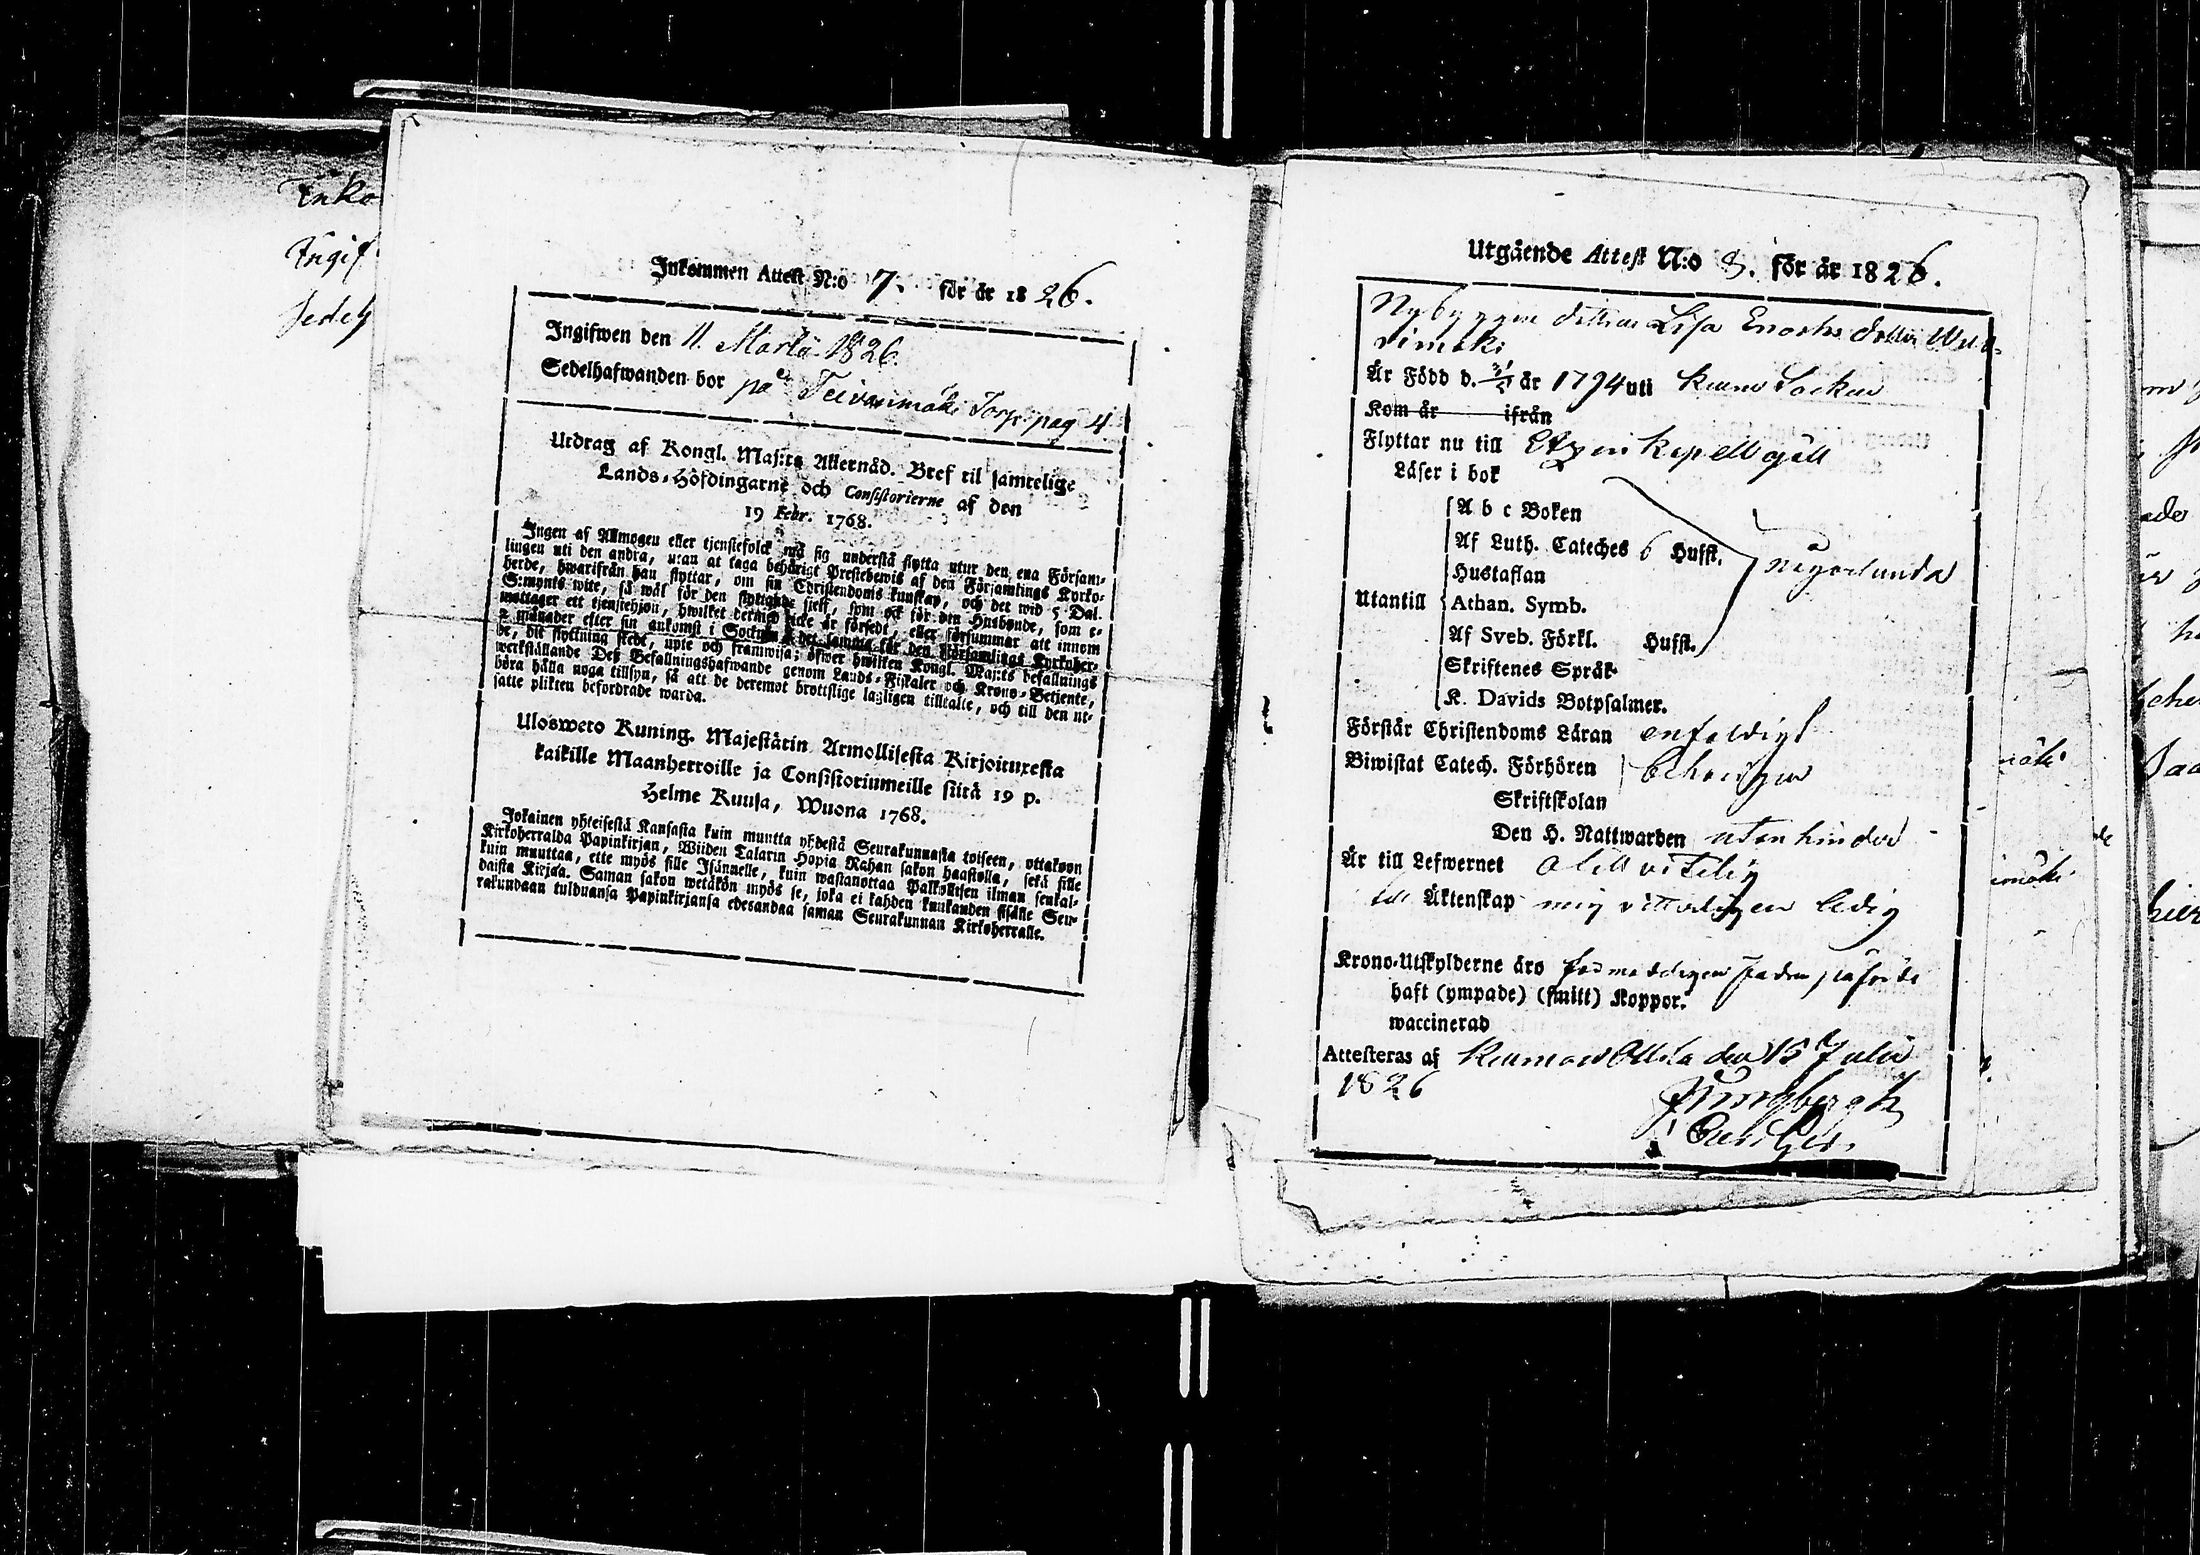 Inko
Ingif
Sedel
Inkommen Attest N:o 7. för år 1826.
Ingifwen den 11. Martii 1826.
Sedelhafwanden bor på Teivanmäki Torp. pag 4
Utdrag af Kongl. Maj:ts Allernåd. Bref til samtelige
Lands-Höfdingarne och Consistorierne af den
19 Febr. 1768.
Ingen af Allmogen eller tjenstefolck må sig understå flytta utur den ena Försam-
lingen uti den andra, utan at taga behörigt Prestebewis af den Församlings Kyrko-
herde, hwarifrån han flyttar, om sin Christendoms kunskap, och det wid 5 Dal.
S:mynts wite, så wäl för den flyttande sielf, som ock för den Husbonde, som e-
mottager ett tjenstehjon, hwilket dermed icke är försedt, eller försummar att innom
2 månader efter sin ankomst i Socknen det samma för den Församlings Kyrkoher-
de, dit flyttning skedt, upte och framwisa; öfwer hwilken Kongl. Maj:ts befallnings
werkställande Dess Befallningshafwande genom Lands-Fiskaler och Krono-Betjente,
böra hålla noga tillsyn, så att de deremot brottslige lagligen tilltalte, och till den ut-
satte plikten befordrade warda.
Ulosweto Kuning. Majestätin Armollisesta Kirjoituxesta
kaikille Maanherroille ja Consistoriumeille siitä 19 p.
Helme Kuusa, Wuona 1768.
Jokainen yhteisestä Kansasta kuin muutta yhdestä Seurakunnasta toiseen, ottakoon
Kirkoherralda Papinkirjan, Wiiden Talarin Hopia Rahan sakon haastolla, sekä sille
kuin muuttaa, ette myös sille Isännelle, kuin wastanottaa Palkollisen ilman senkal-
daista Kirjaa. Saman sakon wetäkön myös se, joka ei kahden kuukanden sisälle Seu-
rakundaan tulduansa Papinkirjansa edesandaa saman Seurakunnan Kirkoherralle.
Utgående Attest N:o 8. för år 1826.
Nybyggare dottren Lisa Enochs dotter
Är Född d. 31/5 år 1794 uti Keuru Socken
Kom år ifrån
Flyttar nu till Etzeri Kapellgäll
Läser i bok
A b c Boken
Af Luth. Cateches 6 Hufst.
någorlunda
Hustaflan
Utantill Athan. Symb.
Af Sveb. Förkl. Hufst.
Skriftenes Språk
K. Davids Botpsalmer.
Förstår Christendoms Läran enfaldigt
Biwistat Catech. Förhören behörigen
Skriftskolan
Den H. Nattwarden utan hinder
Är till Lefwernet
till Äktenskap mig vitterligen ledig
Krono-Utskylderne äro
haft (ympade) (smitt) Koppor.
waccinerad
Attesteras af den 15 Julii
1826